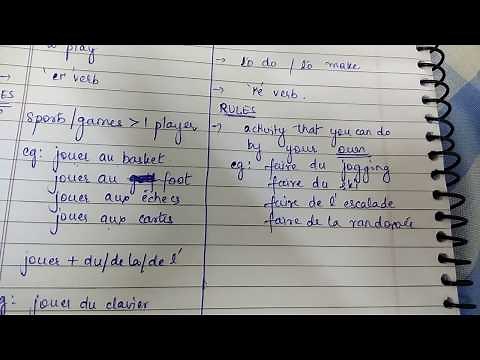 play
→ 'er' verb
ES
sports/games > 1 player
eg: jouer au basket
jouer au foot
jouer aux échecs
jouer aux cartes
jouer + du/de la/de l'
g: jouer du clavier
→ to do / to make
→ 're' verb.
RULES
→ activity that you can do
by your own
eg: faire du jogging
faire du ski
faire de l'escalade
faire de la randonnée